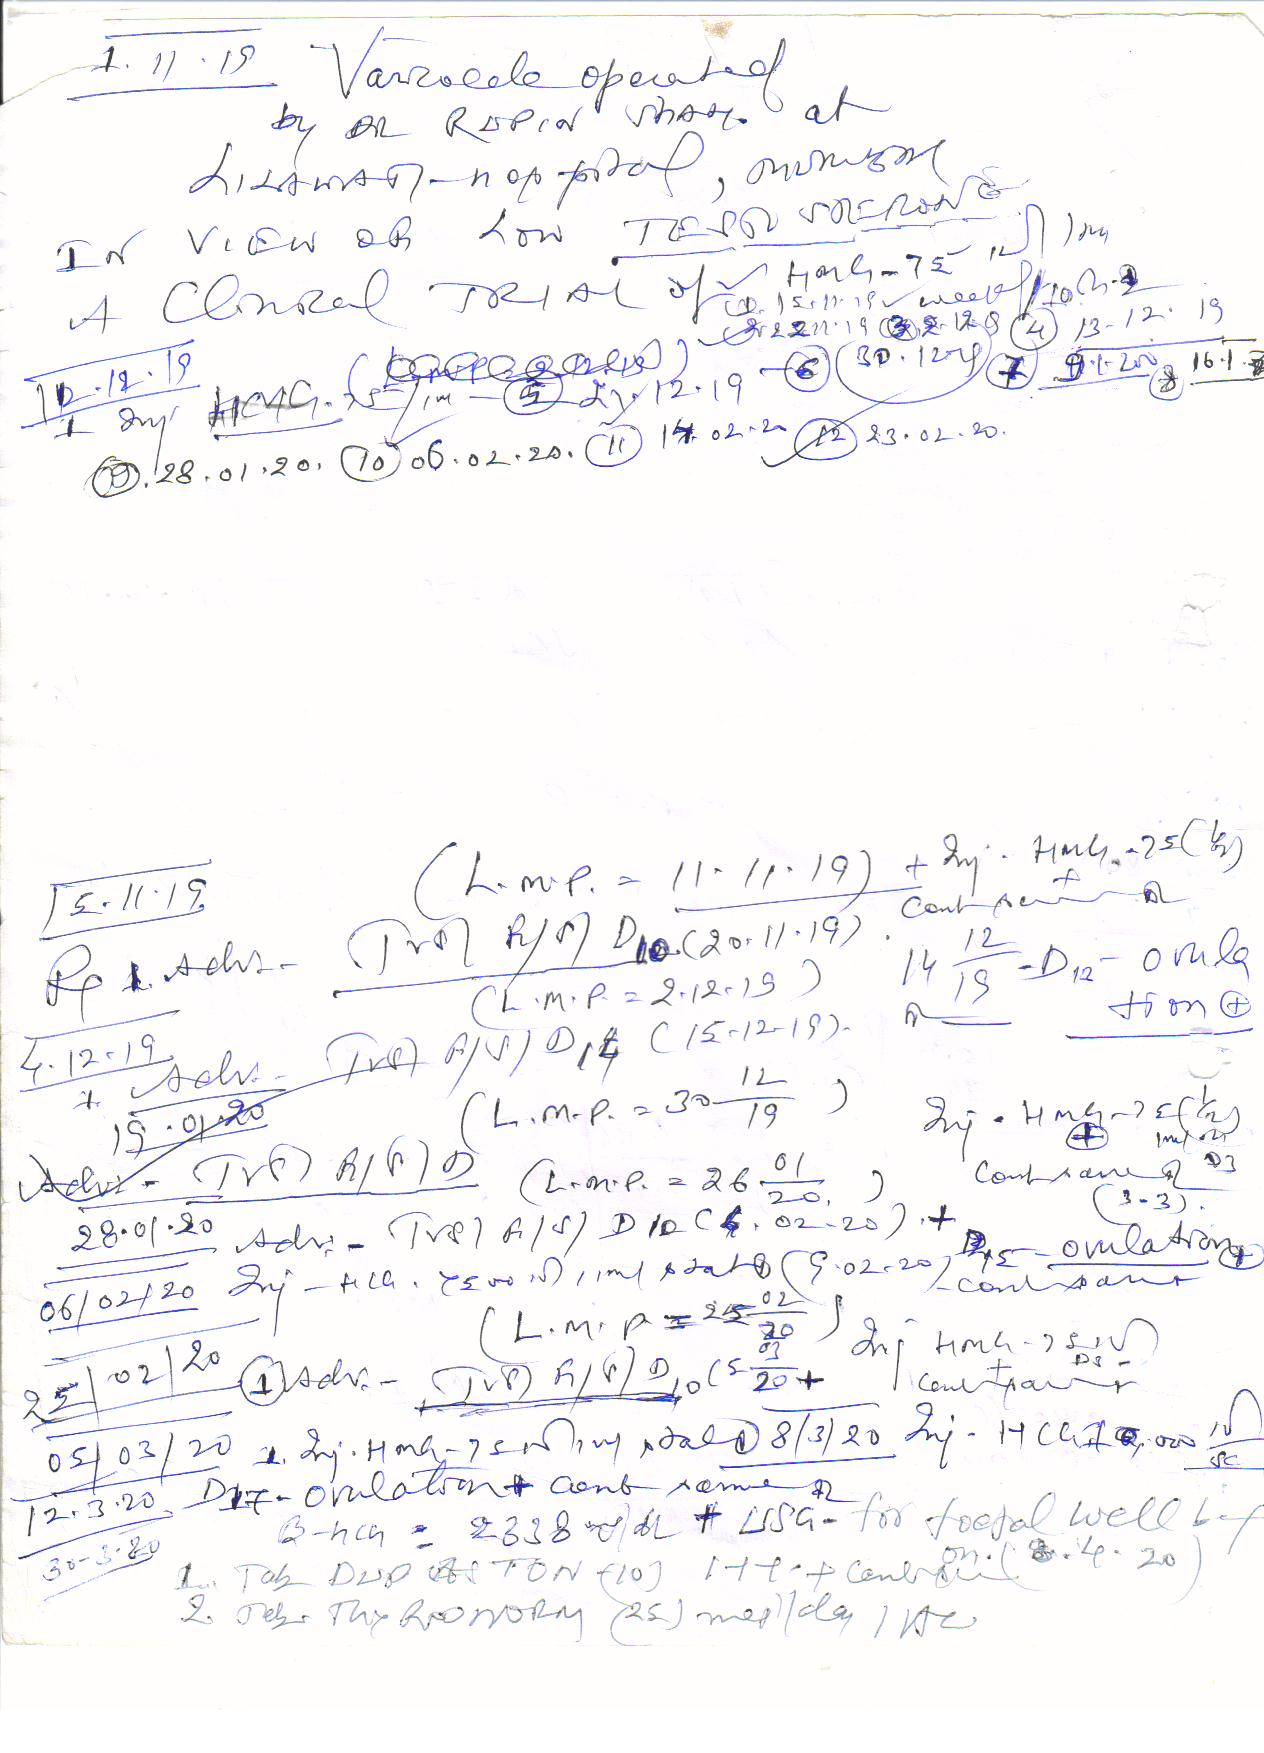 1.11.19 Varicocele operated
by DR RUPIN SHAH. at
LILAWATI-hospital, MUMBAI
IN VIEW OF LOW TESTOSTERONE
A Clinical TRIAL of HMG-75 IU 1m
1. 15.11.19 week/
22.11.19 2.12.19 (4) 13-12.19
12.12.19
1 Inj HMG-75/1m - (5) 27.12.19 - (6) 30.12.19 (7) 9.1.200 (8) 16.1.
(9). 28.01.20. (10) 06.02.20. (11) 14.02.20 (12) 23.02.20.
15.11.19 (L.M.P. = 11.11.19) + Inj. HMG-75(1/2)
+ Cont same R
Rp 1. Adv.- TVS) R/S) D10 (20.11.19). 14 12/19 - D12 - ovula
tion ⊕
(L.M.P = 2.12.19)
4.12.19
1. Adv.- TVS) R/S) D14 (15-12-19).
19.01.20 (L.M.P. = 30 12/19) Inj. HMG-75(1/2)
Adv.- TVS) R/S) D (L.M.P. = 26 01/20) + Cont same R D3
(3-3).
28.01.20 Adv.- TVS) R/S) D10 (4.02.20) + D15 - ovulation +
06/02/20 Inj-HCG. 7500 IU) im stat (9.02.20) - cont same
(L.M.P = 25 02/20) Inj HMG-75 IU D8 -
25/02/20 (1) Adv.- TVS) R/S) D10 (5 03/20 + + Cont same
05/03/20 1. Inj. HMG-75 IU im stat 8/3/20 Inj. HCG 10,000 IU sc
12.3.20 D17- ovulation + cont same R
30-3-20 B-hCG = 2338 + USG- for foetal well being
on. (8.4.20)
1. Tab DUPHASTON (10) 1++ + Cont
2. Tab. THYRONORM (25) mcg/day 1 AC